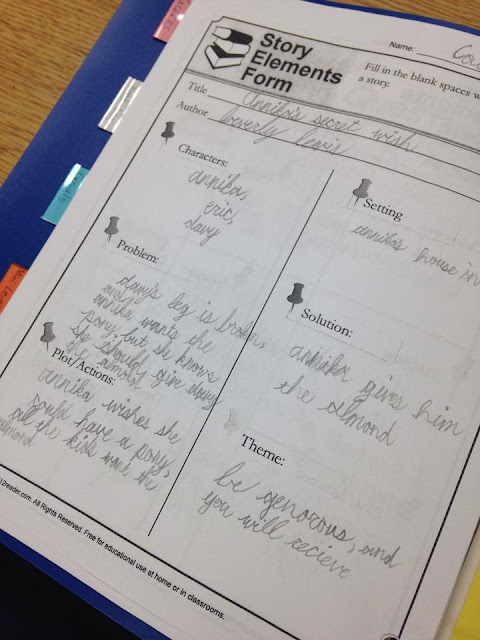 Story
Elements
Form
Name:
Fill in the blank spaces w
a story.
Title annika's secret wish
Author beverly lewis
Characters:
annika,
eric,
davy
Setting
annika's house in
Problem:
davy's leg is broken,
and
annika wants the
pony but she knows
she should give davy
the almond
Solution:
annika gives him
the almond
Plot/Actions:
annika wishes she
could have a pony,
all the kids want the
almond
Theme:
be generous, and
you will recieve
12reader.com. All Rights Reserved. Free for educational use at home or in classrooms.